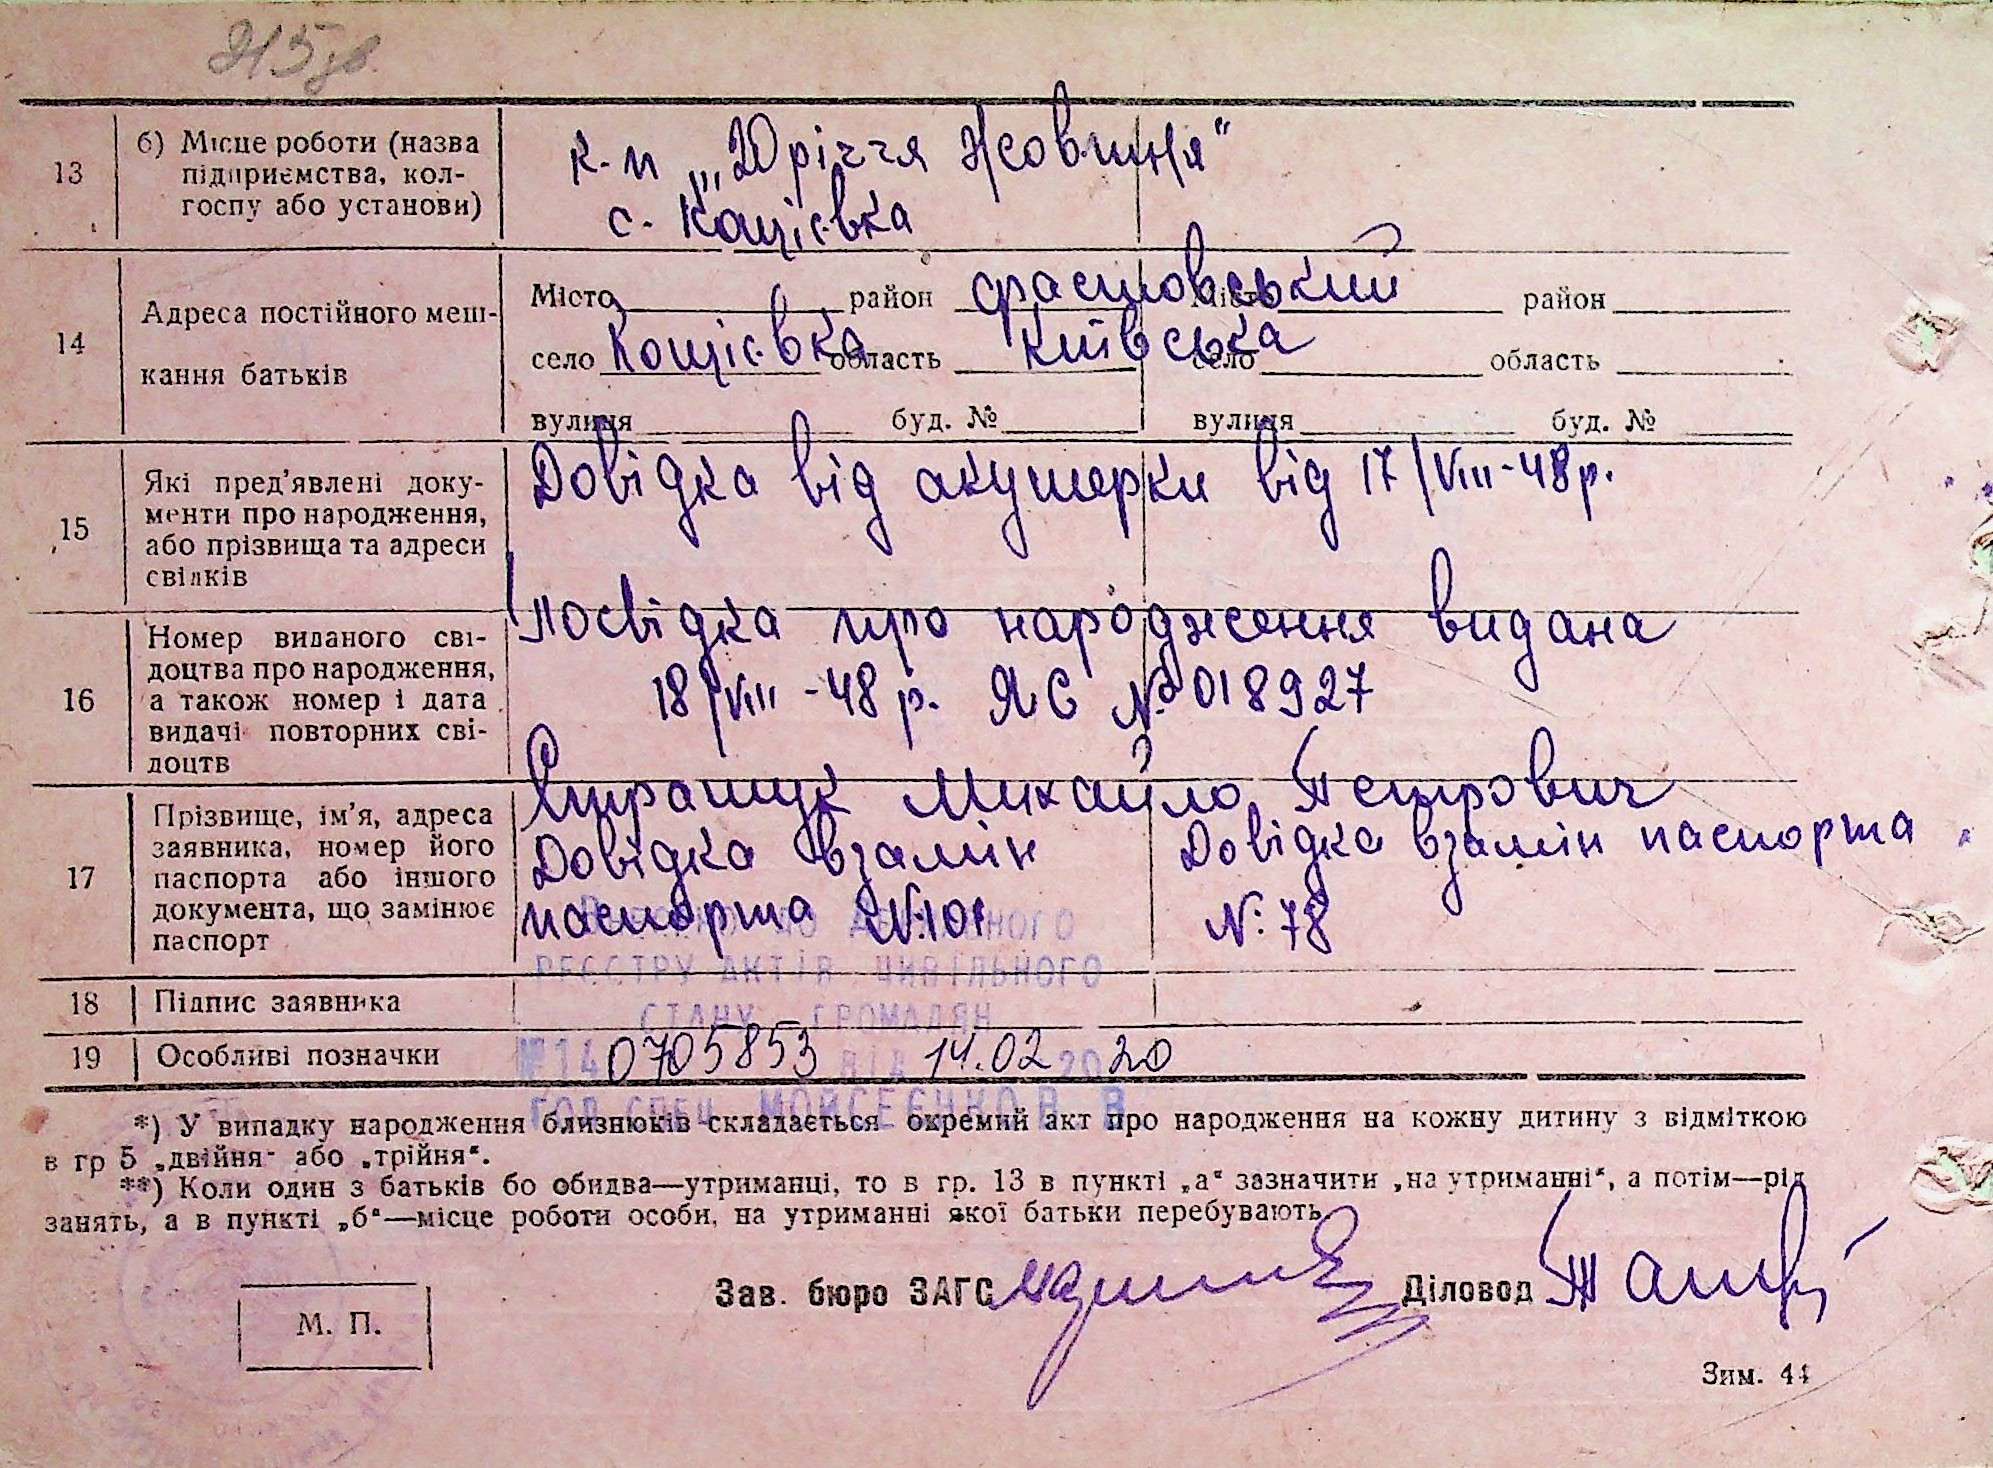 215 зв
13
б) Місце роботи (назва
підприємства, кол-
госпу або установи)
к-п „20 річчя Жовтня"
с. Кощієвка
14
Адреса постійного меш-
кання батьків
Місто район Фастовський Місто район
село Кощієвка область Київська село область
вулиця буд. № вулиця буд. №
15
Які пред'явлені доку-
менти про народження,
або прізвища та адреси
свілків
Довідка від акушерки від 17/VIII-48 р.
16
Номер виданого сві-
доцтва про народження,
а також номер і дата
видачі повторних сві-
доцтв
Посвідка про народження видана
18/VIII-48 р. ЯС № 018927
17
Прізвище, ім'я, адреса
заявника, номер його
паспорта або іншого
документа, що замінює
паспорт
Михайло Петрович
Довідка взамін Довідка взамін паспорта
паспорта №101 №: 78
РЕЄСТРУ АКТІВ ЦИВІЛЬНОГО
СТАНУ ГРОМАДЯН
18
Підпис заявника
19
Особливі позначки
№14 0705853 ВІД 14.02 2020
ГОЛ СПЕЦ МОЙСЕЄНКО В. В.
*) У випадку народження близнюків складається окремий акт про народження на кожну дитину з відміткою
в гр 5 „двійня" або „трійня".
**) Коли один з батьків бо обидва—утриманці, то в гр. 13 в пункті „а" зазначити „на утриманні", а потім—рід
занять, а в пункті „б"—місце роботи особи, на утриманні якої батьки перебувають.
Зав. бюро ЗАГС Діловод
М. П.
Зим. 44